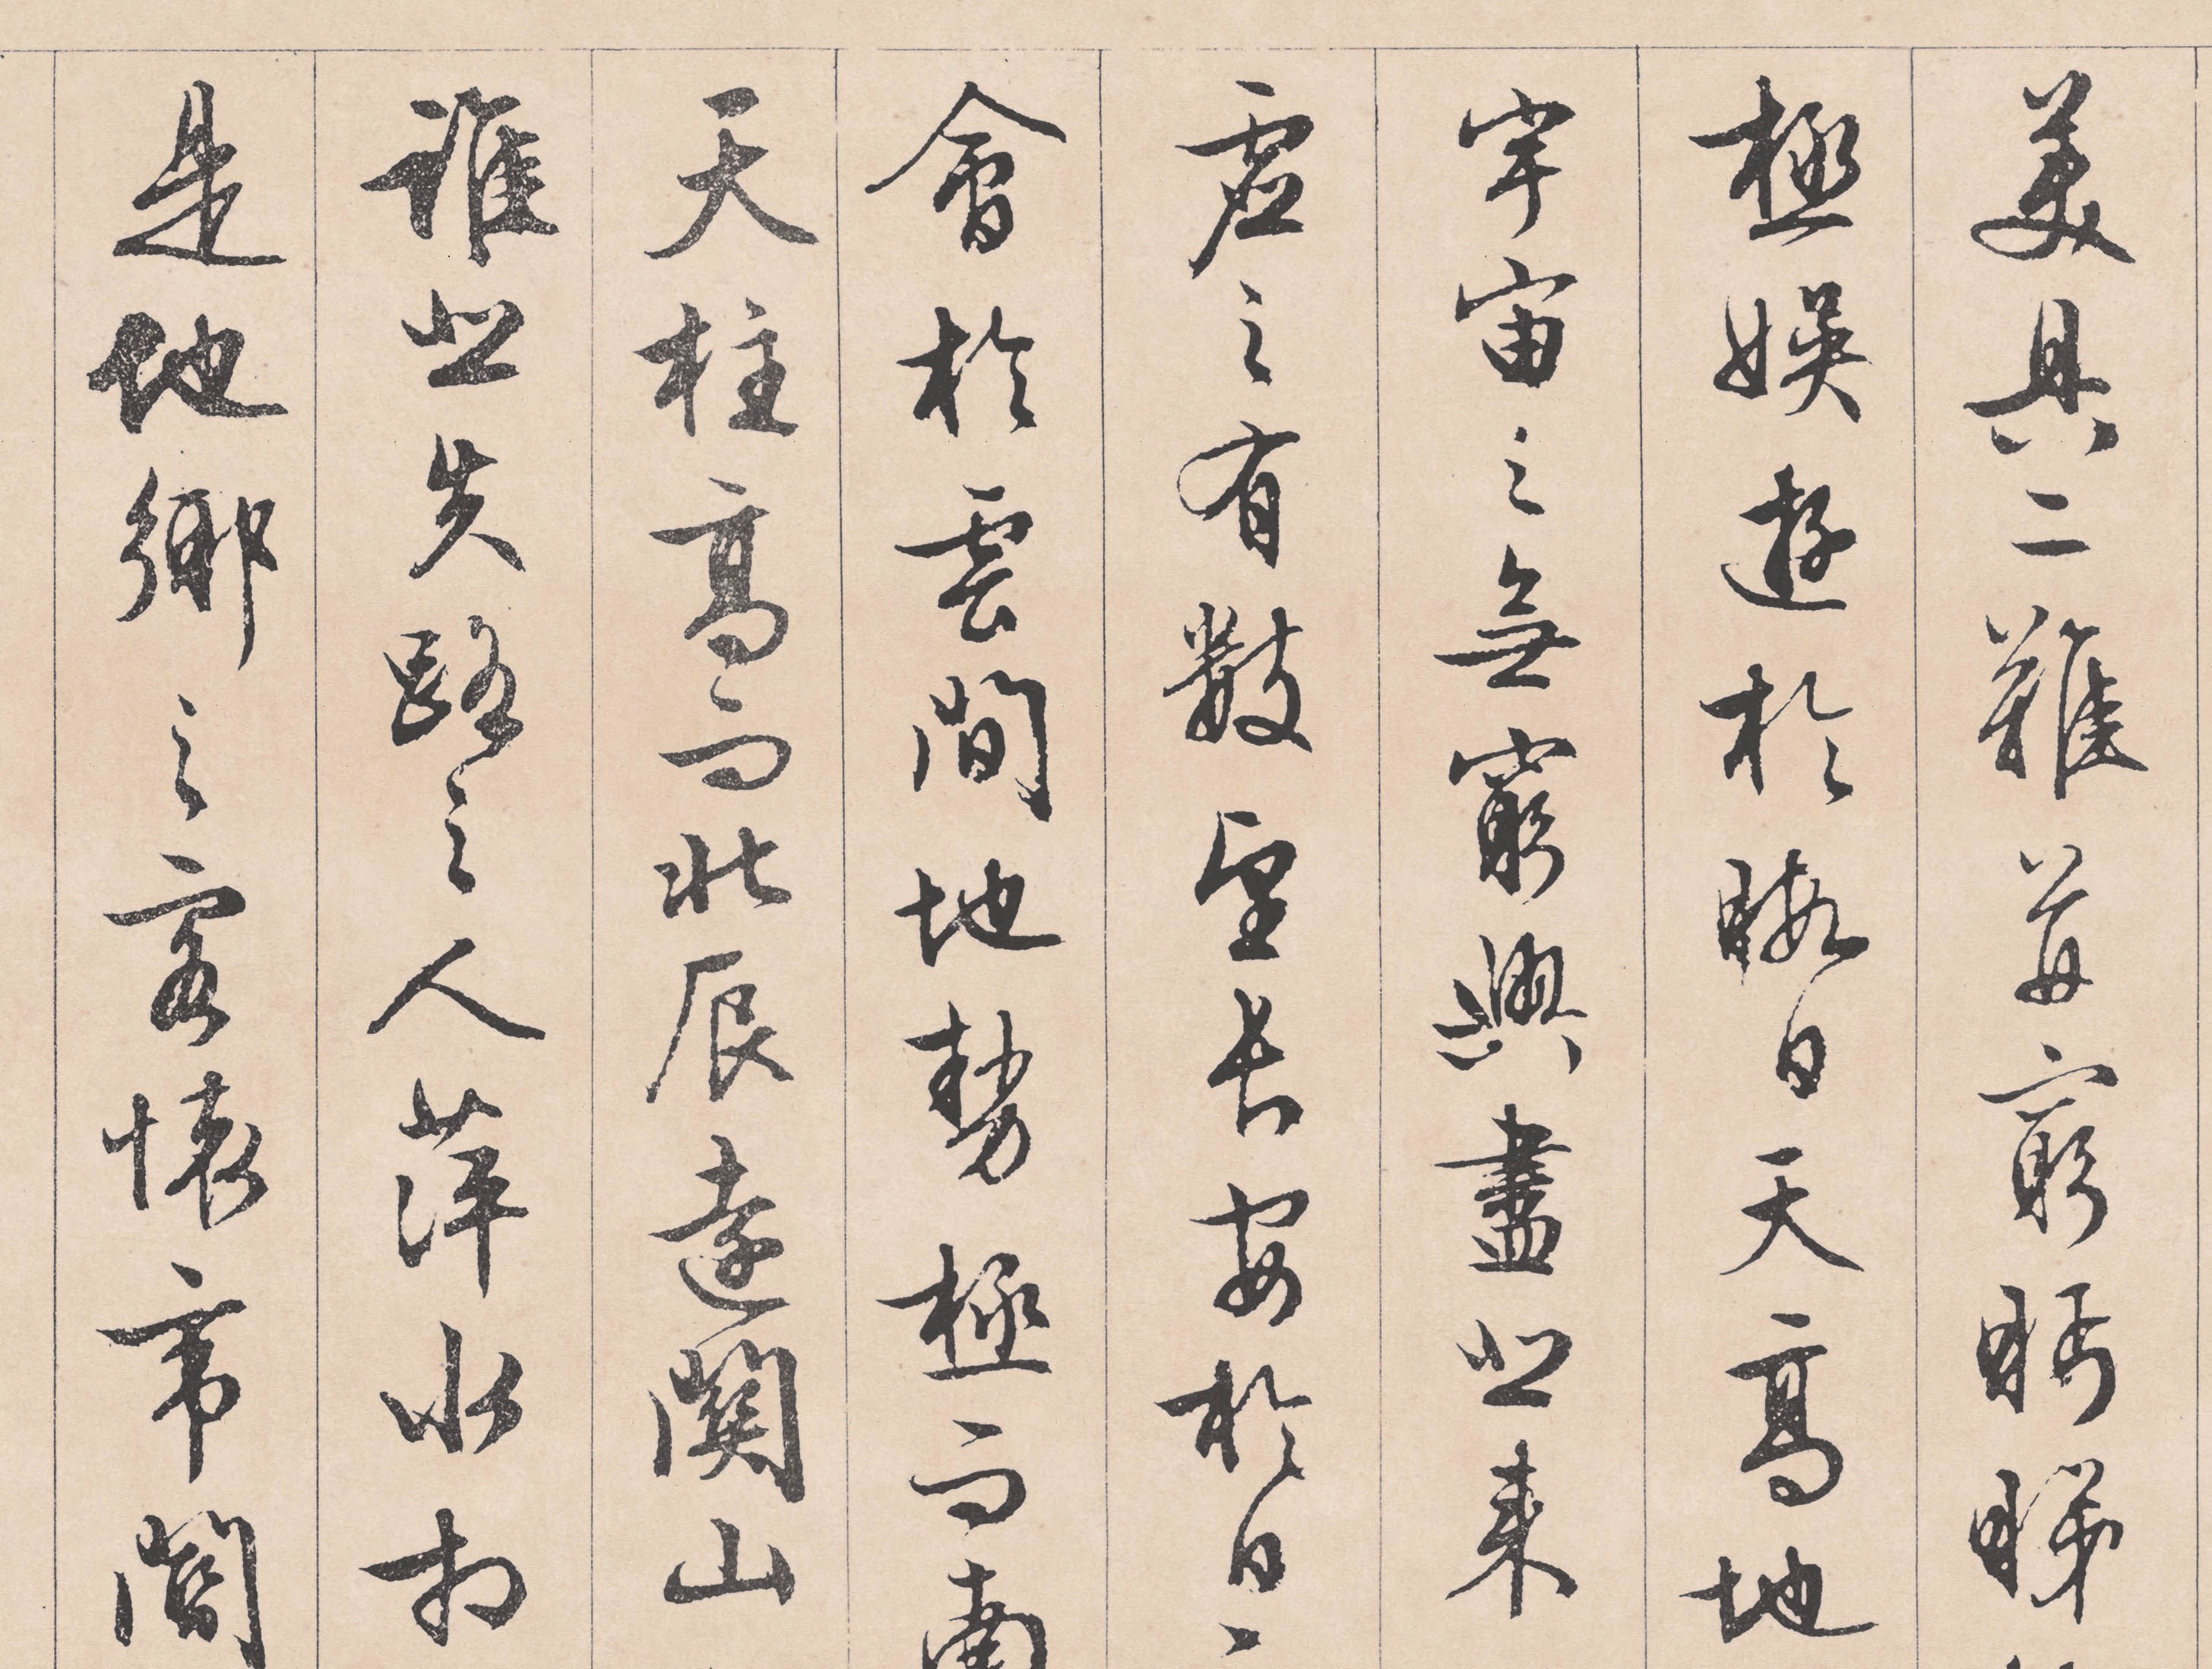 美具二難并窮眄睇
極娛遊於暇日天高地
宇宙之無窮興盡悲来
虛之有數望長安於日
會於雲間地勢極而南
天柱高而北辰遠關山
誰悲失路之人萍水相
是他鄉之客懷帝閽